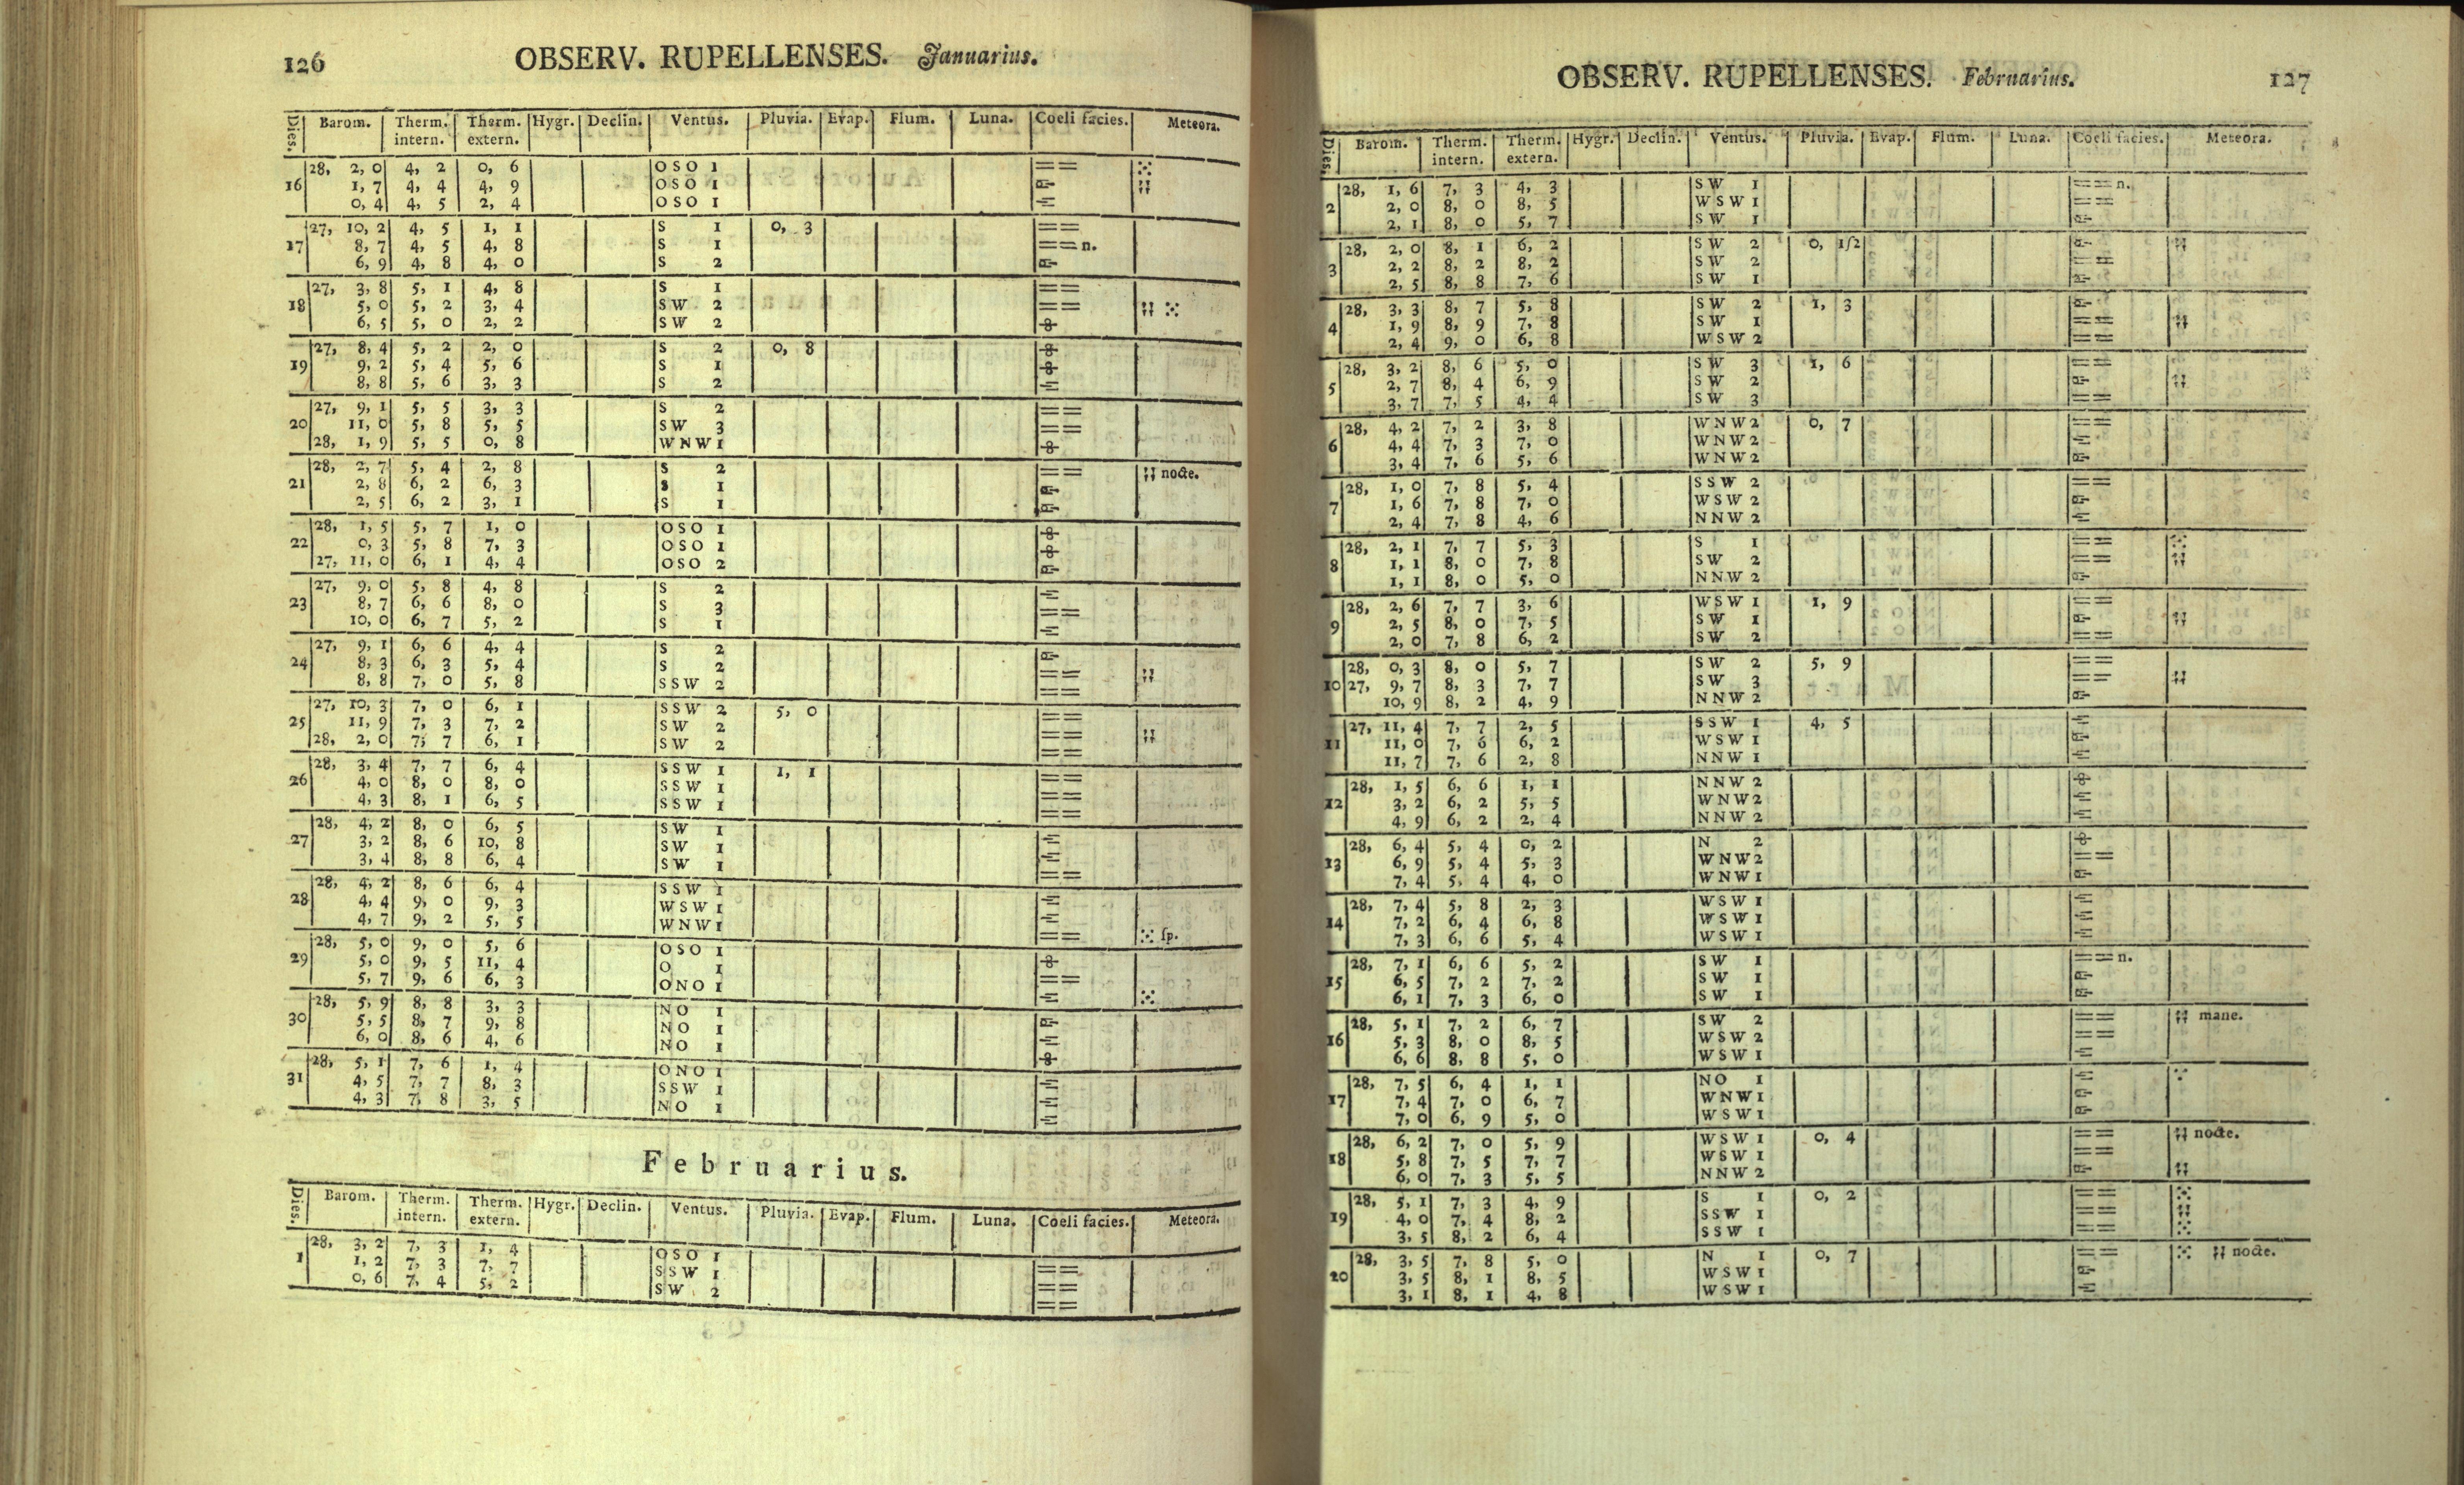 126 OBSERV. RUPELLENSES. Januarius.
Dies. Barom. Therm. intern. Therm. extern. Hygr. Declin. Ventus. Pluvia. Evap. Flum. Luna. Coeli facies. Meteora.
28, 2, 0 4, 2 0, 6 OSO 1
16 1, 7 4, 4 4, 9 OSO 1
0, 4 4, 5 2, 4 OSO 1
27, 10, 2 4, 5 1, 1 S 1 0, 3
17 8, 7 4, 5 4, 8 S 1 n.
6, 9 4, 8 4, 0 S 2
27, 3, 8 5, 1 4, 8 S 1
18 5, 0 5, 2 3, 4 SW 2
6, 5 5, 0 2, 2 SW 2
27, 8, 4 5, 2 2, 0 S 2 0, 8
19 9, 2 5, 4 5, 6 S 1
8, 8 5, 6 3, 3 S 2
27, 9, 1 5, 5 3, 3 S 2
20 11, 0 5, 8 5, 5 SW 3
28, 1, 9 5, 5 0, 8 WNW 1
28, 2, 7 5, 4 2, 8 S 2 nocte.
21 2, 8 6, 2 6, 3 S 1
2, 5 6, 2 3, 1 S 1
28, 1, 5 5, 7 1, 0 OSO 1
22 0, 3 5, 8 7, 3 OSO 1
27, 11, 0 6, 1 4, 4 OSO 2
27, 9, 0 5, 8 4, 8 S 2
23 8, 7 6, 6 8, 0 S 3
10, 0 6, 7 5, 2 S 1
27, 9, 1 6, 6 4, 4 S 2
24 8, 3 6, 3 5, 4 S 2
8, 8 7, 0 5, 8 SSW 2
27, 10, 3 7, 0 6, 1 SSW 2 5, 0
25 11, 9 7, 3 7, 2 SW 2
28, 2, 0 7, 7 6, 1 SW 2
28, 3, 4 7, 7 6, 4 SSW 1 1, 1
26 4, 0 8, 0 8, 0 SSW 1
4, 3 8, 1 6, 5 SSW 1
28, 4, 2 8, 0 6, 5 SW 1
27 3, 2 8, 6 10, 8 SW 1
3, 4 8, 8 6, 4 SW 1
28, 4, 2 8, 6 6, 4 SSW 1
28 4, 4 9, 0 9, 3 WSW 1
4, 7 9, 2 5, 5 WNW 1 ſp.
28, 5, 0 9, 0 5, 6 OSO 1
29 5, 0 9, 5 11, 4 O 1
5, 7 9, 6 6, 3 ONO 1
28, 5, 9 8, 8 3, 3 NO 1
30 5, 5 8, 7 9, 8 NO 1
6, 0 8, 6 4, 6 NO 1
28, 5, 1 7, 6 1, 4 ONO 1
31 4, 5 7, 7 8, 3 SSW 1
4, 3 7, 8 3, 5 NO 1
Februarius.
Dies. Barom. Therm. intern. Therm. extern. Hygr. Declin. Ventus. Pluvia. Evap. Flum. Luna. Coeli facies. Meteora.
28, 3, 2 7, 3 1, 4 OSO 1
1 1, 2 7, 3 7, 7 SSW 1
0, 6 7, 4 5, 2 SW 2
OBSERV. RUPELLENSES. Februarius. 127
Dies. Barom. Therm. intern. Therm. extern. Hygr. Declin. Ventus. Pluvia. Evap. Flum. Luna. Coeli facies. Meteora.
28, 1, 6 7, 3 4, 3 SW 1 n.
2 2, 0 8, 0 8, 5 WSW 1
2, 1 8, 0 5, 7 SW 1
28, 2, 0 8, 1 6, 2 SW 2 0, 1ſ2
3 2, 2 8, 2 8, 2 SW 2
2, 5 8, 8 7, 6 SW 1
28, 3, 3 8, 7 5, 8 SW 2 1, 3
4 1, 9 8, 9 7, 8 SW 1
2, 4 9, 0 6, 8 WSW 2
28, 3, 2 8, 6 5, 0 SW 3 1, 6
5 2, 7 8, 4 6, 9 SW 2
3, 7 7, 5 4, 4 SW 3
28, 4, 2 7, 2 3, 8 WNW 2 0, 7
6 4, 4 7, 3 7, 0 WNW 2
3, 4 7, 6 5, 6 WNW 2
28, 1, 0 7, 8 5, 4 SSW 2
7 1, 6 7, 8 7, 0 WSW 2
2, 4 7, 8 4, 6 NNW 2
28, 2, 1 7, 7 5, 3 S 1
8 1, 1 8, 0 7, 8 SW 2
1, 1 8, 0 5, 0 NNW 2
28, 2, 6 7, 7 3, 6 WSW 1 1, 9
9 2, 5 8, 0 7, 5 SW 1
2, 0 7, 8 6, 2 SW 2
28, 0, 3 8, 0 5, 7 SW 2 5, 9
10 27, 9, 7 8, 3 7, 7 SW 3
10, 9 8, 2 4, 9 NNW 2
27, 11, 4 7, 7 2, 5 SSW 1 4, 5
11 11, 0 7, 6 6, 2 WSW 1
11, 7 7, 6 2, 8 NNW 1
28, 1, 5 6, 6 1, 1 NNW 2
12 3, 2 6, 2 5, 5 WNW 2
4, 9 6, 2 2, 4 NNW 2
28, 6, 4 5, 4 0, 2 N 2
13 6, 9 5, 4 5, 3 WNW 2
7, 4 5, 4 4, 0 WNW 1
28, 7, 4 5, 8 2, 3 WSW 1
14 7, 2 6, 4 6, 8 WSW 1
7, 3 6, 6 5, 4 WSW 1
28, 7, 1 6, 6 5, 2 SW 1 n.
15 6, 5 7, 2 7, 2 SW 1
6, 1 7, 3 6, 0 SW 1
28, 5, 1 7, 2 6, 7 SW 2 mane.
16 5, 3 8, 0 8, 5 WSW 2
6, 6 8, 8 5, 0 WSW 1
28, 7, 5 6, 4 1, 1 NO 1
17 7, 4 7, 0 6, 7 WNW 1
7, 0 6, 9 5, 0 WSW 1
28, 6, 2 7, 0 5, 9 WSW 1 0, 4 nocte.
18 5, 8 7, 5 7, 7 WSW 1
6, 0 7, 3 5, 5 NNW 2
28, 5, 1 7, 3 4, 9 S 1 0, 2
19 4, 0 7, 4 8, 2 SSW 1
3, 5 8, 2 6, 4 SSW 1
28, 3, 5 7, 8 5, 0 N 1 0, 7 nocte.
20 3, 5 8, 1 8, 5 WSW 1
3, 1 8, 1 4, 8 WSW 1